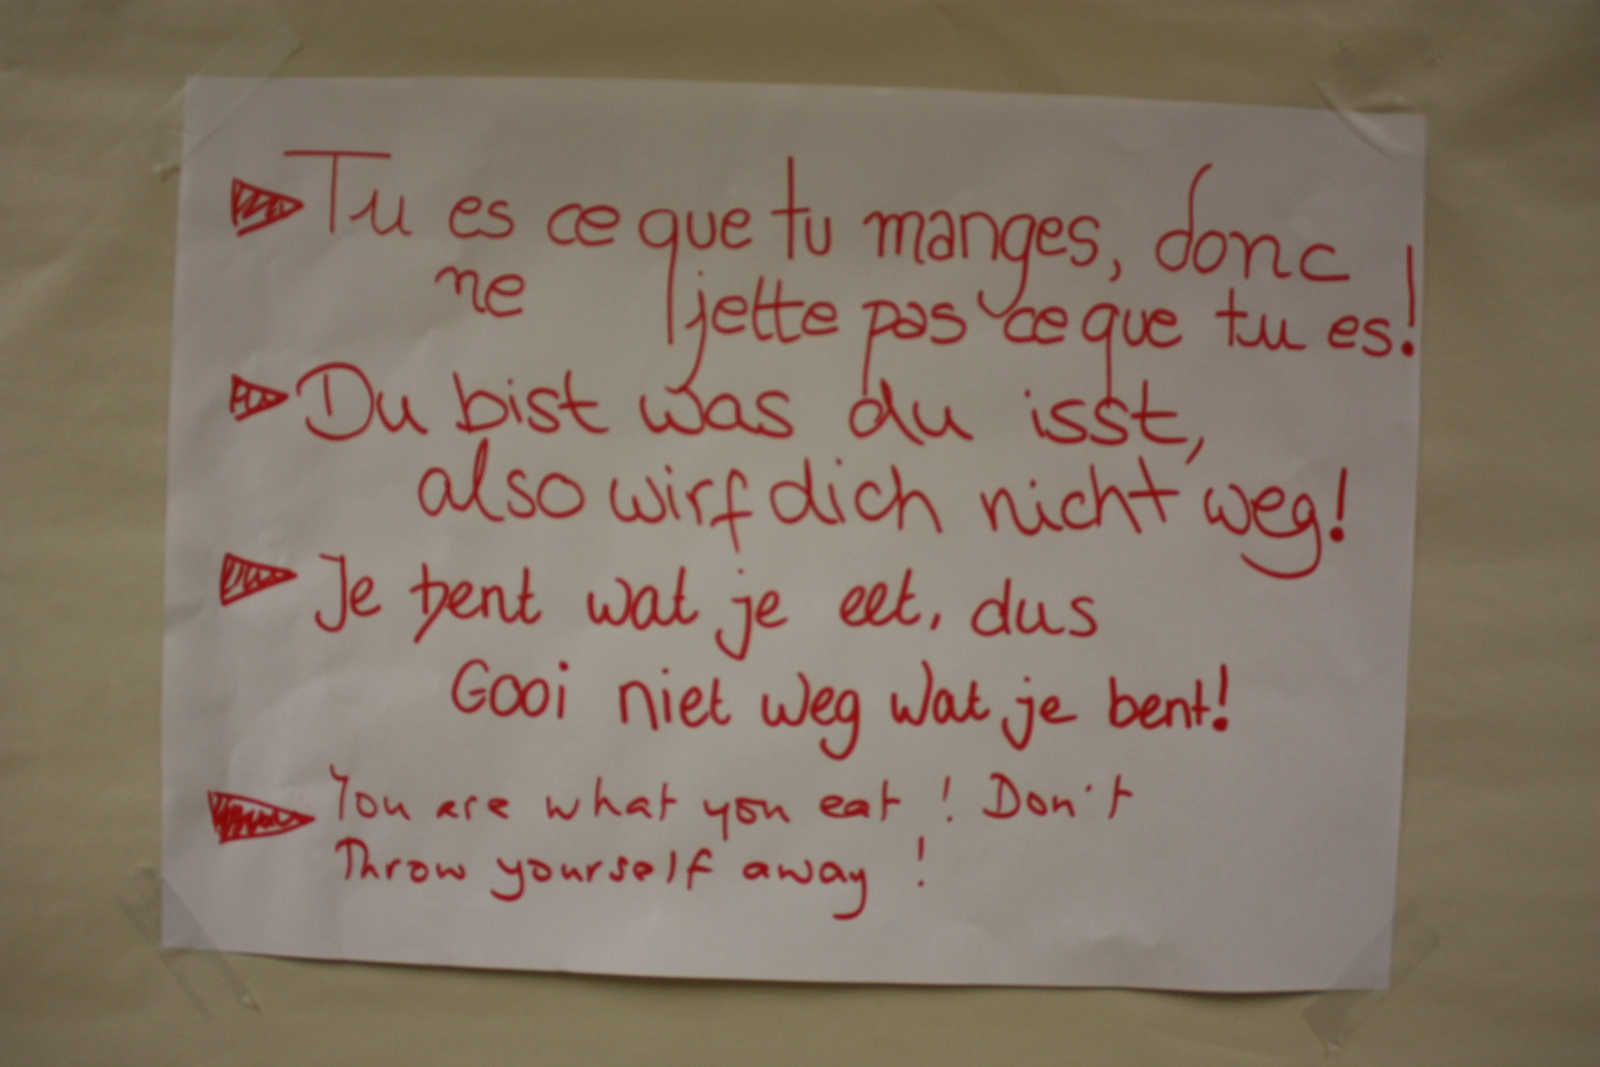 Tu es ce que tu manges, donc
ne jette pas ce que tu es!
Du bist was du isst,
also wirf dich nicht weg!
Je bent wat je eet, dus
Gooi niet weg wat je bent!
You are what you eat ! Don't
Throw yourself away !